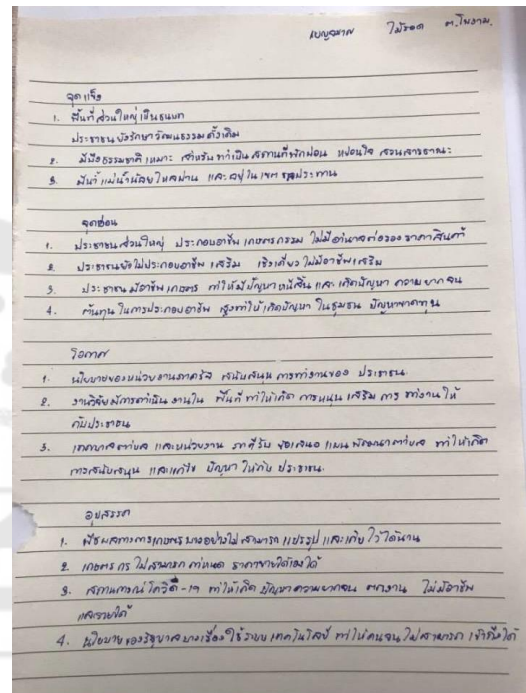 เบญจมาศ ไม้รอด ต.โพงาม.
จุดแข็ง
1. พื้นที่ส่วนใหญ่เป็นชนบท
ประชาชนยังรักษาวัฒนธรรมดั้งเดิม
2. มีธรรมชาติ เหมาะ สำหรับ ทำเป็น สถานที่พักผ่อน หย่อนใจ สวนสาธารณะ
3. มีแม่น้ำน้อยไหลผ่าน และ อยู่ในเขต ชลประทาน
จุดอ่อน
1. ประชาชนส่วนใหญ่ ประกอบอาชีพ เกษตรกรรม ไม่มีอำนาจต่อรอง ราคาสินค้า
2. ประชาชนยังไม่ประกอบอาชีพ เสริม เชิงเดี่ยว ไม่มีอาชีพเสริม
3. ประชาชน มีอาชีพ เกษตร ทำให้มีปัญหา หนี้สิน และ เกิดปัญหา ความยากจน
4. ต้นทุน ในการประกอบอาชีพ สูงทำให้ เกิดปัญหา ในชุมชน ปัญหาขาดทุน
โอกาส
1. นโยบายของหน่วยงานภาครัฐ สนับสนุน การทำงานของ ประชาชน.
2. งานวิจัยมีการดำเนินงานใน พื้นที่ ทำให้เกิด การหนุน เสริม การ ทำงาน ให้
กับประชาชน
3. เทศบาลตำบล และหน่วยงาน ภาคีรับ ข้อเสนอ แผน พัฒนาตำบล ทำให้เกิด
การสนับสนุน และแก้ไข ปัญหา ให้กับ ประชาชน.
อุปสรรค
1. พืชผลทางการเกษตร บางอย่างไม่สามารถ แปรรูป และเก็บ ไว้ ได้นาน
2. เกษตรกร ไม่สามารถ กำหนด ราคาขายได้เองได้
3. สถานการณ์โควิด-19 ทำให้เกิด ปัญหาความยากจน ตกงาน ไม่มีอาชีพ
และรายได้
4. นโยบายของรัฐบาลบางเรื่อง ใช้ระบบ เทคโนโลยี ทำให้คนจนไม่สามารถ เข้าถึงได้